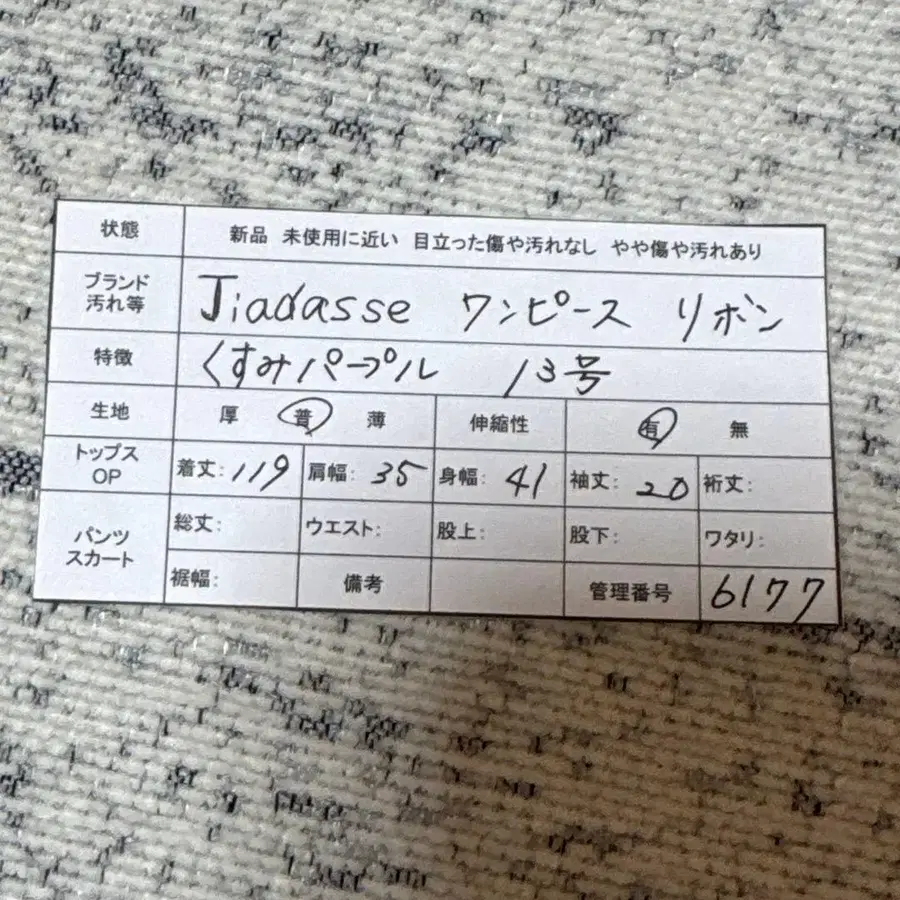 状態 新品 未使用に近い 目立った傷や汚れなし やや傷や汚れあり
ブランド
汚れ等 Jiadasse ワンピース リボン
特徴 くすみパープル 13号
生地 厚 普 薄 伸縮性 有 無
トップス
OP 着丈: 119 肩幅: 35 身幅: 41 袖丈: 20 裄丈:
パンツ
スカート 総丈: ウエスト: 股上: 股下: ワタリ:
裾幅: 備考 管理番号 6177